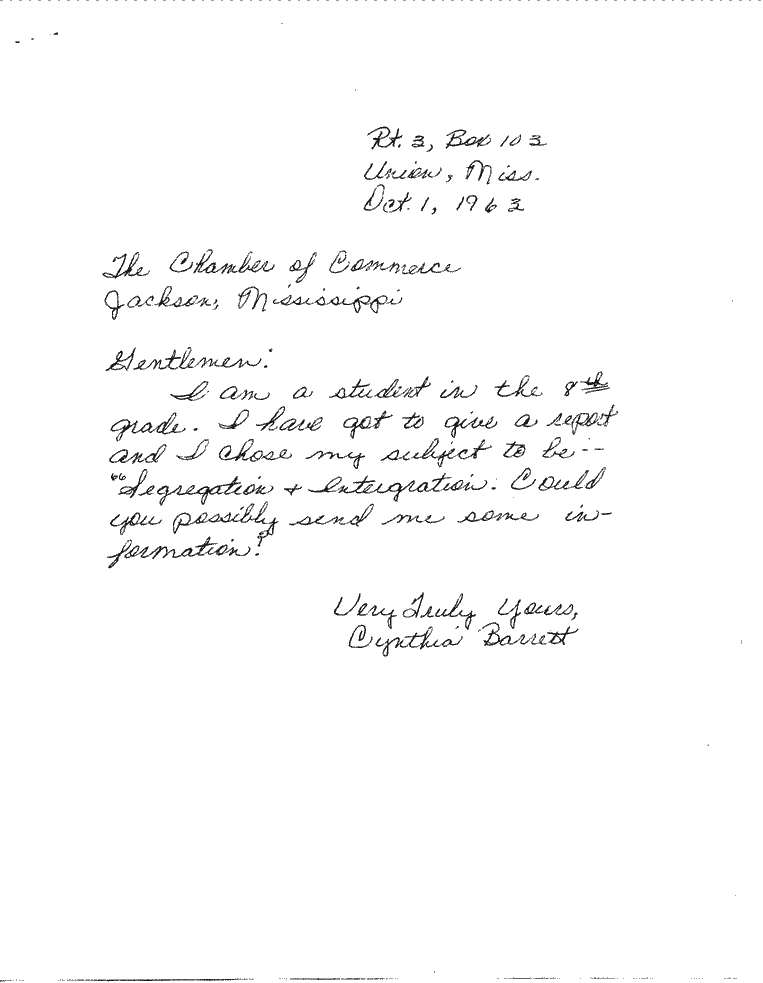 Rt. 3, Box 103
Union, Miss.
Oct. 1, 1963
The Chamber of Commerce
Jackson, Mississippi
Gentlemen:
I am a student in the 8th
grade. I have got to give a report
and I chose my subject to be--
"Segregation + Intergration. Could
you possibly send me some in-
formation?
Very Truly Yours,
Cynthia Barrett